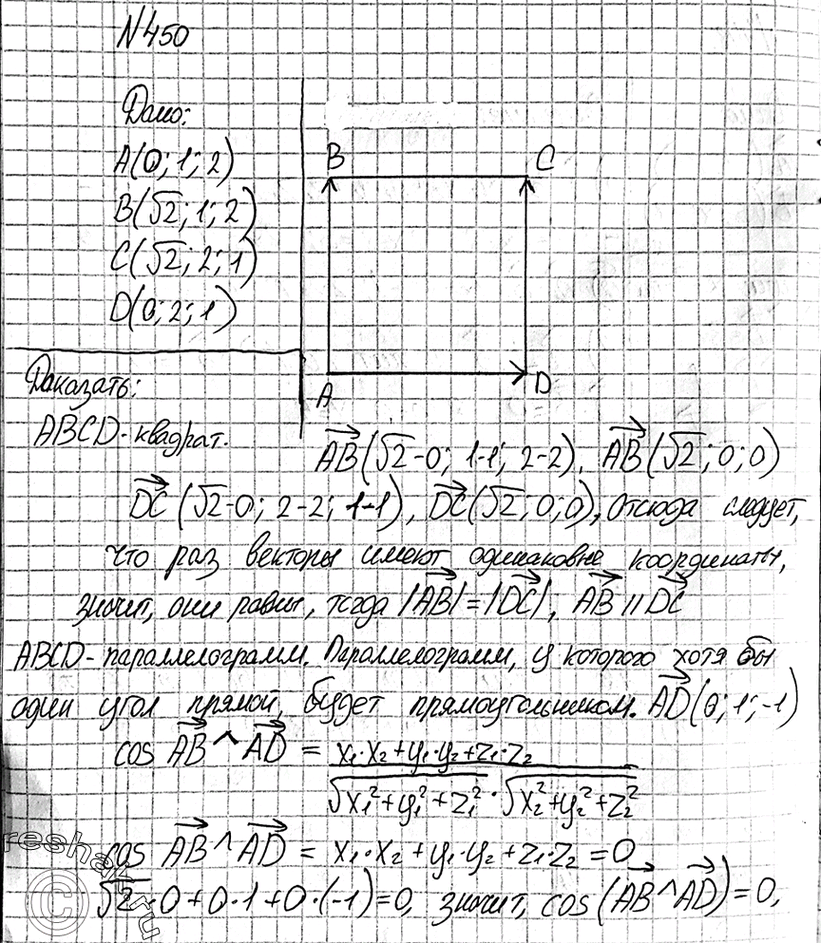 N450
Дано:
A(0; 1; 2)
B(√2; 1; 2)
C(√2; 2; 1)
D(0; 2; 1)
B C
A D
Доказать:
ABCD-квадрат.
AB(√2-0; 1-1; 2-2), AB(√2; 0; 0)
DC(√2-0; 2-2; 1-1), DC(√2; 0; 0), отсюда следует,
что раз векторы имеют одинаковые координаты,
значит, они равны, тогда |AB|=|DC|, AB || DC
ABCD-параллелограмм. Параллелограмм, у которого хотя бы
один угол прямой, будет прямоугольником. AD(0; 1; -1)
cos AB ^ AD = x₁·x₂+y₁·y₂+z₁·z₂
√x₁²+y₁²+z₁² · √x₂²+y₂²+z₂²
cos AB ^ AD = x₁·x₂+y₁·y₂+z₁·z₂ = 0
√2·0+0·1+0·(-1)=0, значит, cos(AB^AD)=0,
reshak.ru
©